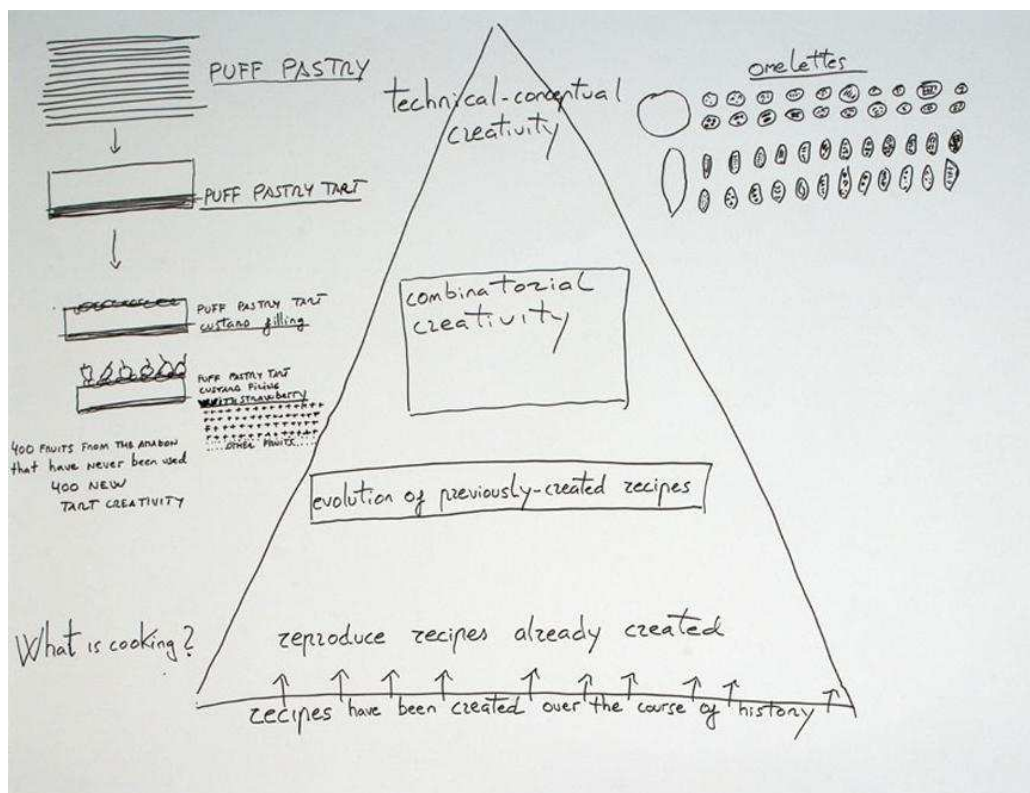 PUFF PASTRY
PUFF PASTRY TART
PUFF PASTRY TART
CUSTARD filling
PUFF PASTRY TART
CUSTARD FILLING
WITH STRAWBERRY
OTHER FRUITS
400 FRUITS FROM THE AMAZON
that have never been used
400 NEW
TART CREATIVITY
What is cooking?
technical-conceptual
creativity
combinatorial
creativity
evolution of previously-created recipes
reproduce recipes already created
recipes have been created over the course of history
omelettes